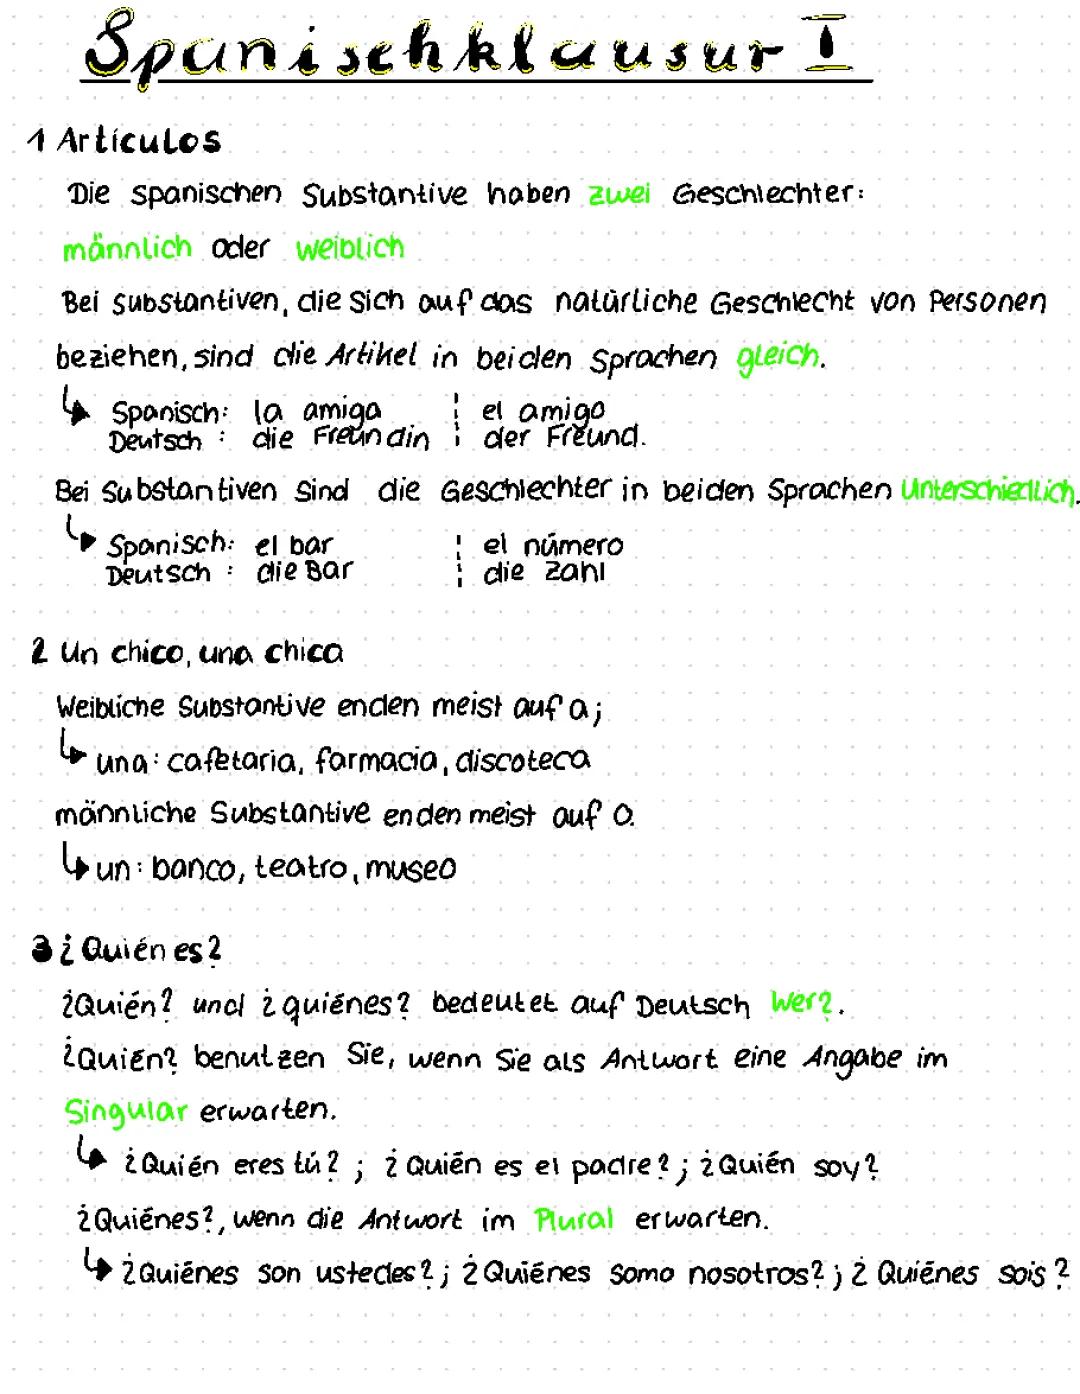 Spanischklausur I
1 Artículos
Die spanischen Substantive haben zwei Geschlechter:
männlich oder weiblich
Bei substantiven, die sich auf das natürliche Geschlecht von Personen
beziehen, sind die Artikel in beiden Sprachen gleich.
↳ Spanisch: la amiga ¦ el amigo
Deutsch : die Freundin ¦ der Freund.
Bei Substantiven sind die Geschlechter in beiden Sprachen Unterschiedlich.
↳ Spanisch: el bar ¦ el número
Deutsch : die Bar ¦ die Zahl
2 Un chico, una chica
Weibliche Substantive enden meist auf a;
↳ una: cafetaria, farmacia, discoteca
männliche Substantive enden meist auf o.
↳ un: banco, teatro, museo
3 ¿Quién es?
¿Quién? und ¿quiénes? bedeutet auf Deutsch Wer?.
¿Quién? benutzen Sie, wenn Sie als Antwort eine Angabe im
Singular erwarten.
↳ ¿Quién eres tú? ; ¿Quién es el padre? ; ¿Quién soy?
¿Quiénes?, wenn die Antwort im Plural erwarten.
↳ ¿Quiénes son ustedes? ; ¿Quiénes somo nosotros? ; ¿Quiénes sois?